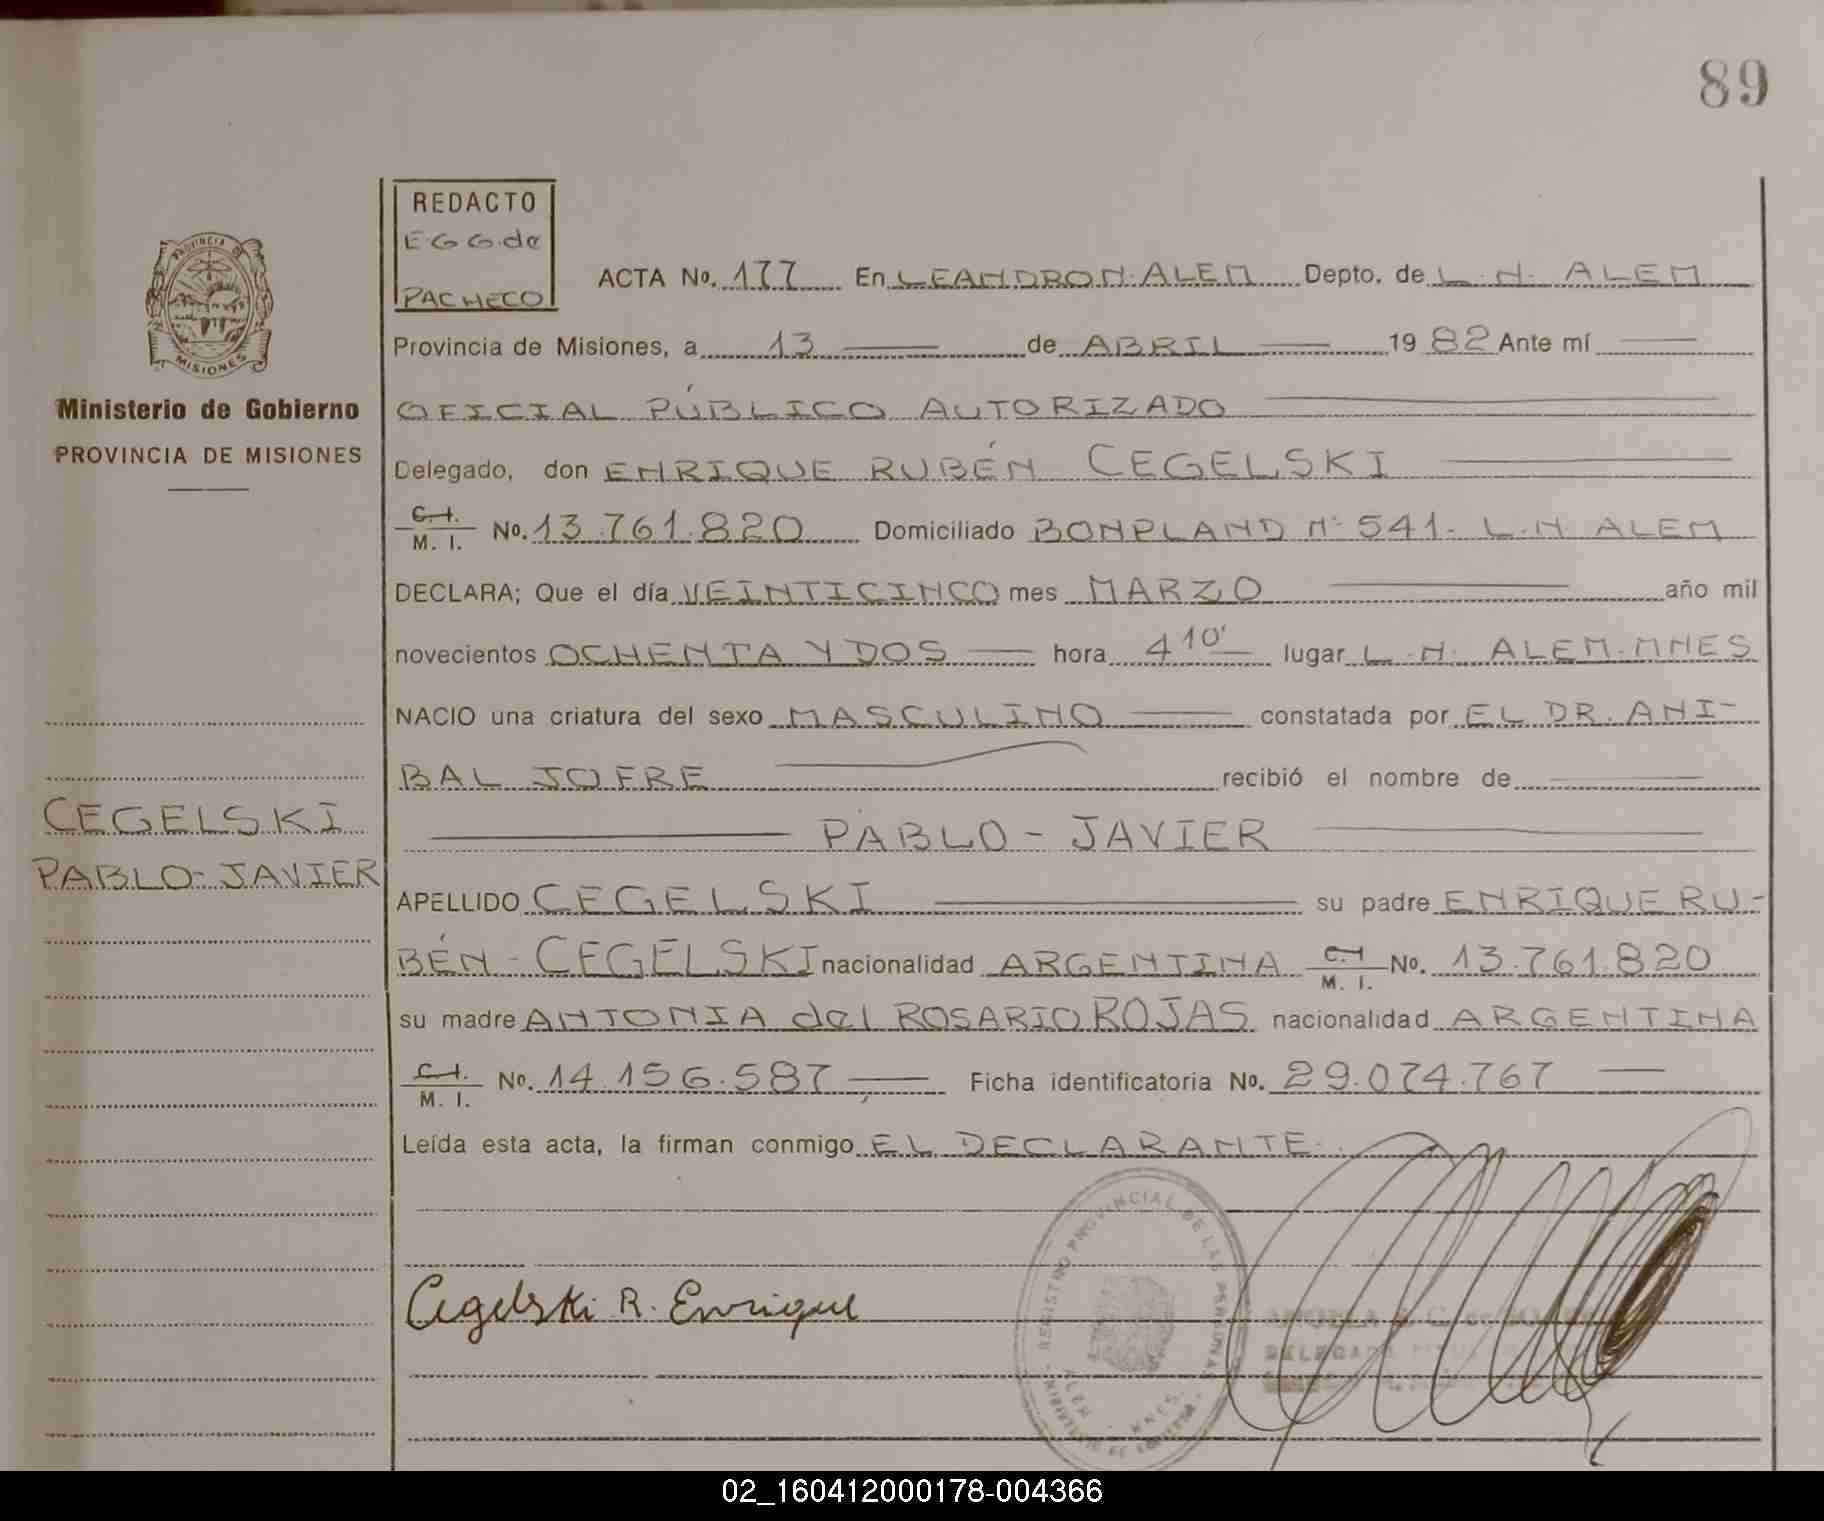 89
REDACTO
E.G G. de
PACHECO
PROVINCIA DE
MISIONES
Ministerio de Gobierno
PROVINCIA DE MISIONES
ACTA No. 177 En LEANDRO N. ALEM Depto. de L. N. ALEM
Provincia de Misiones, a 13 de ABRIL 1982 Ante mí
OFICIAL PÚBLICO AUTORIZADO
Delegado, don ENRIQUE RUBÉN CEGELSKI
C. I.
M. I. No. 13.761.820 Domiciliado BONPLAND Nº 541- L.N. ALEM
DECLARA; Que el día VEINTICINCO mes MARZO año mil
novecientos OCHENTA Y DOS hora 4 10' lugar L. N. ALEM. MNES
NACIO una criatura del sexo MASCULINO constatada por EL DR. ANI-
BAL JOFRE recibió el nombre de
PABLO - JAVIER
CEGELSKI
PABLO - JAVIER
APELLIDO CEGELSKI su padre ENRIQUE RU-
BÉN - CEGELSKI nacionalidad ARGENTINA C. I
M. I. No. 13.761.820
su madre ANTONIA del ROSARIO ROJAS nacionalidad ARGENTINA
C. I.
M. I. No. 14.156.587 Ficha identificatoria No. 29.074.767
Leída esta acta, la firman conmigo EL DECLARANTE.
Cegelski R. Enrique
REGISTRO PROVINCIAL DE LAS PERSONAS
ALEM MNES.
02_160412000178-004366